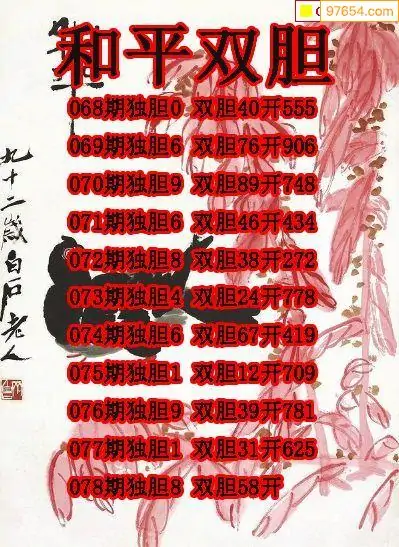 97654.com
和平双胆
068期独胆0 双胆40开555
069期独胆6 双胆76开906
070期独胆9 双胆89开748
071期独胆6 双胆46开434
072期独胆8 双胆38开272
073期独胆4 双胆24开778
074期独胆6 双胆67开419
075期独胆1 双胆12开709
076期独胆9 双胆39开781
077期独胆1 双胆31开625
078期独胆8 双胆58开
九十二岁白石老人